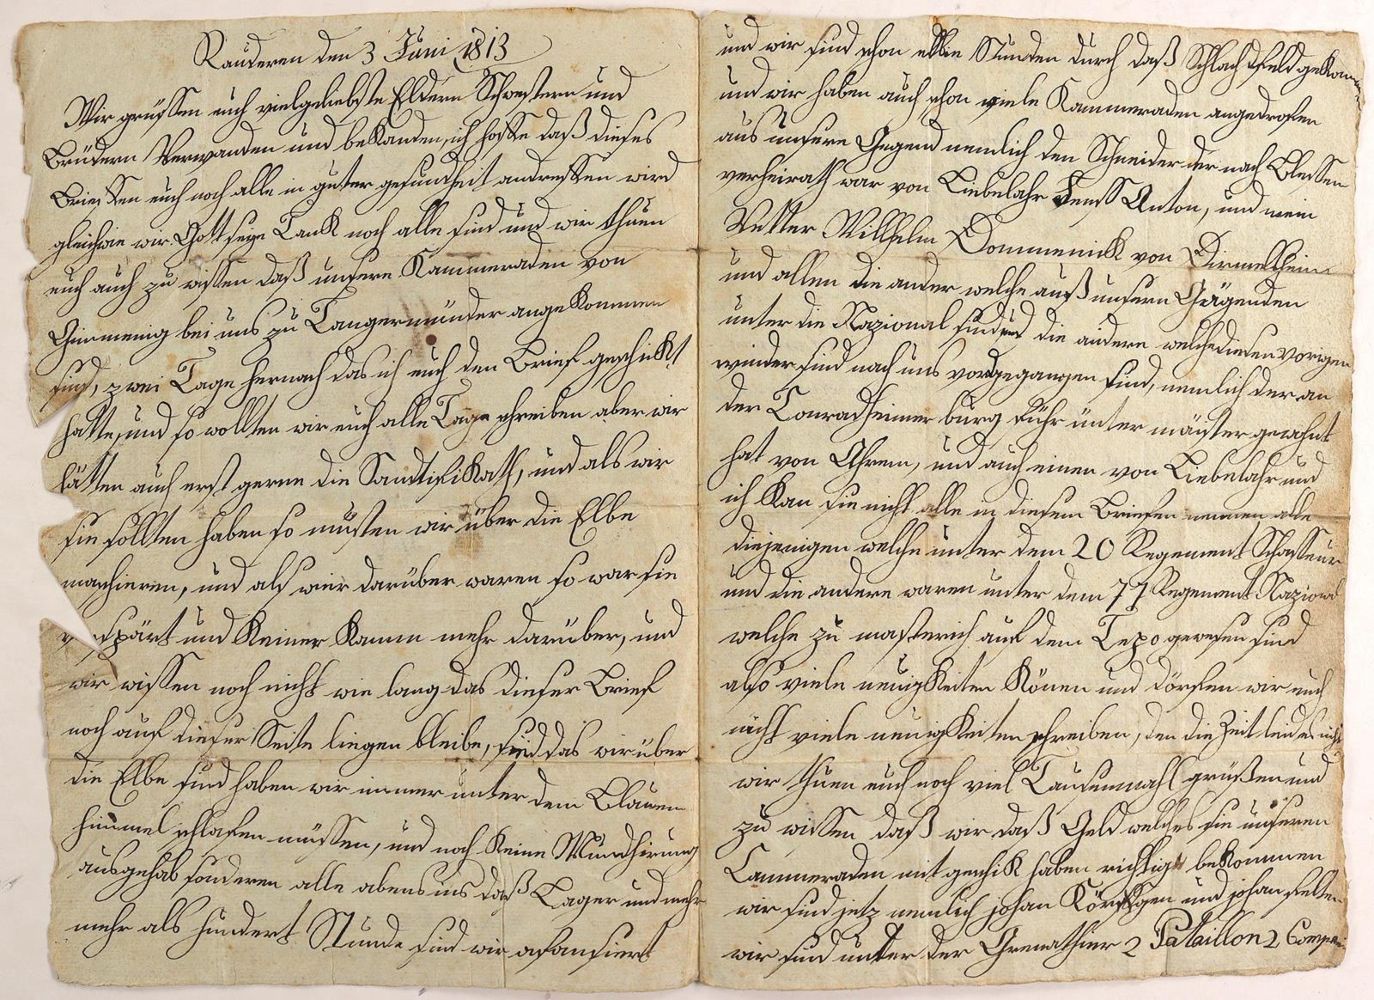 Rauderen den 3 Juni 1813
Wir grüssen euch vielgeliebste Eldern Schwestern und
Brüdern Verwanden und bekanden, ich hoffe daß dieses
Briefsen euch noch alle in guter gesundheit andreffen wird
gleichwie wir Gott seye Tank noch alle sind und wir thuen
euch auch zu wissen daß unsere Kammeraden von
Gimmenig bei uns zu Tangermünder angekommen
sind, zwei Tage hernach das ich euch den Brief geschickt
hatte, und so wollten wir euch alle Tage schreiben aber wir
hätten auch erst gerne die Sandtifikath, und als wir
sie sollten haben so musten wir über die Elbe
marchieren, und als wier darüber waren so war sie
gespärt und keiner kamm mehr darüber, und
wir wissen noch nicht wie lang das dieser Brief
noch auf dieser Seite liegen bleibe, sind das wir über
die Elbe sind haben wir immer unter dem Blauen
himmel schlafen müssen, und noch keine Mundhirung
ausgehab sonderen alle abens ins daß Lager und mehr
mehr als hundert Stunde sind wir afansiert
und wir sind schon etliie Stunden durch daß Schlachtfeld gekomm
und wir haben auch schon viele Kammeraden angedrofen
aus unsere Gegend nemlich den Schneider der nach Blessen
verheirath war von Liebelahr Anton, und mein
Vetter Willhelm Dommenick von Dirmelheim
und allen die ander welche auß unsern Gägenden
unter die Nazional sind und die andere welche diesen vorigen
winder sind nach uns vordgegangen sind, nemlich der an
der Conradheimer burg führ unter mäister gewohnt
hat von Ahrem, und auch einen von Liebelahr und
ich kan sie nicht alle in diesem Briefen nennen alle
diejenigen welche unter dem 20 Regement Schasseur
und die andere waren unter dem 77 Regement Nazional
welche zu masterich auf dem Tepo gewesen sind
also viele neuigkeiten können und dörfen wir euch
nicht viele neuigkeiten schreiben, den die Zeit leid es nicht
wir thuen euch noch viel Tausenmahl grüßen und
zu wissen daß wir daß Geld welches sie unseren
Cammeraden mit geschik haben richtigt bekommen
wir sind jetz nemlich johan Körttgen und johan felten
wir sind unter der Grenathier 2 Pataillon 2 Compani